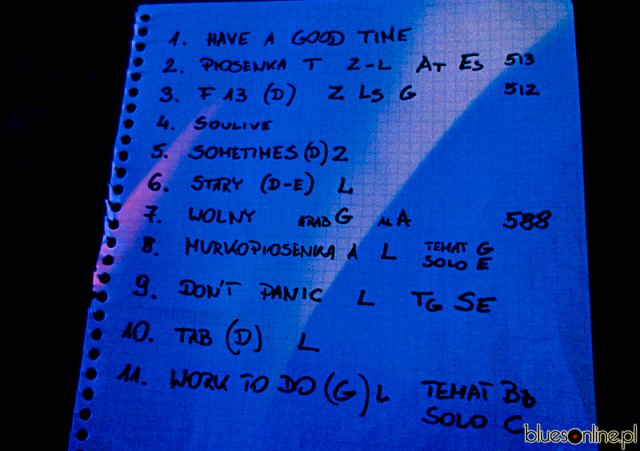 1. HAVE A GOOD TIME
2. PIOSENKA T Z-L AT ES 513
3. F 13 (D) Z LS G 512
4. SOULIVE
5. SOMETIMES (D) Z
6. STARY (D-E) L
7. WOLNY ARAB G AL A 588
8. MURKOPIOSENKA A L TEMAT G
SOLO E
9. DON'T PANIC L TG SE
10. TAB (D) L
11. WORK TO DO (G) L TEMAT Bb
SOLO C
bluesonline.pl